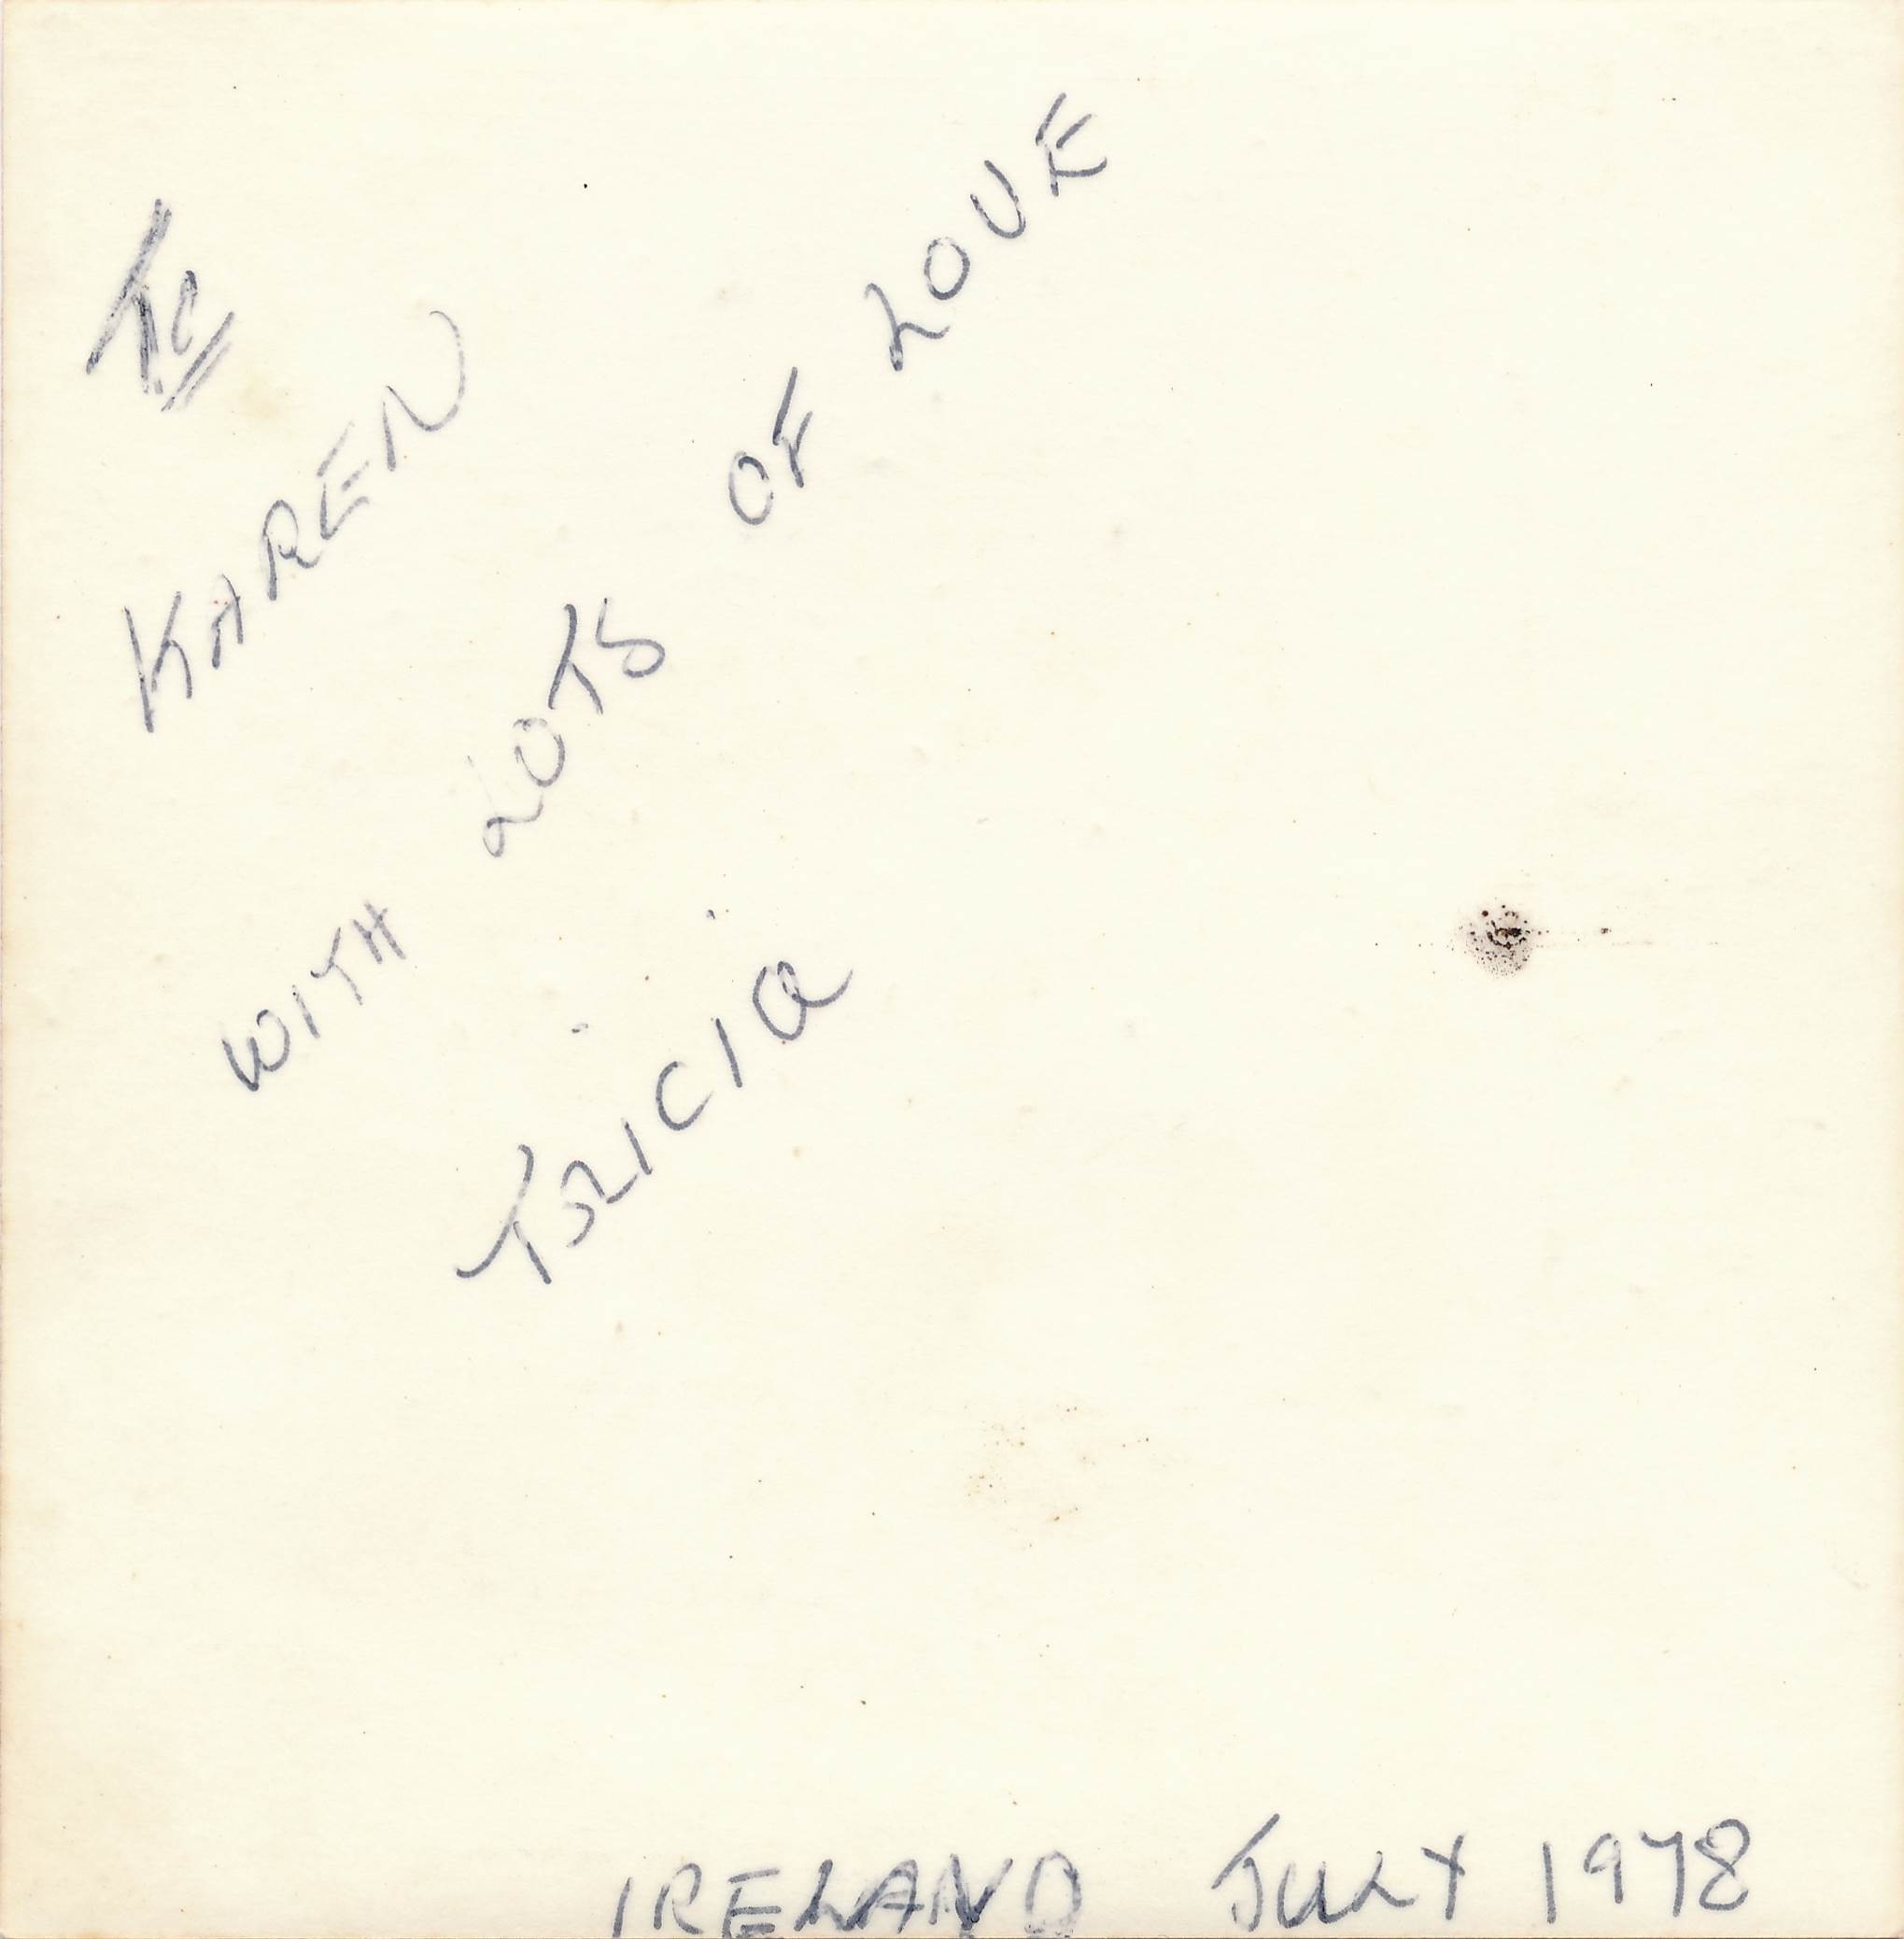 To
KAREN
WITH LOTS OF LOVE
TRICIA
IRELAND JULY 1978